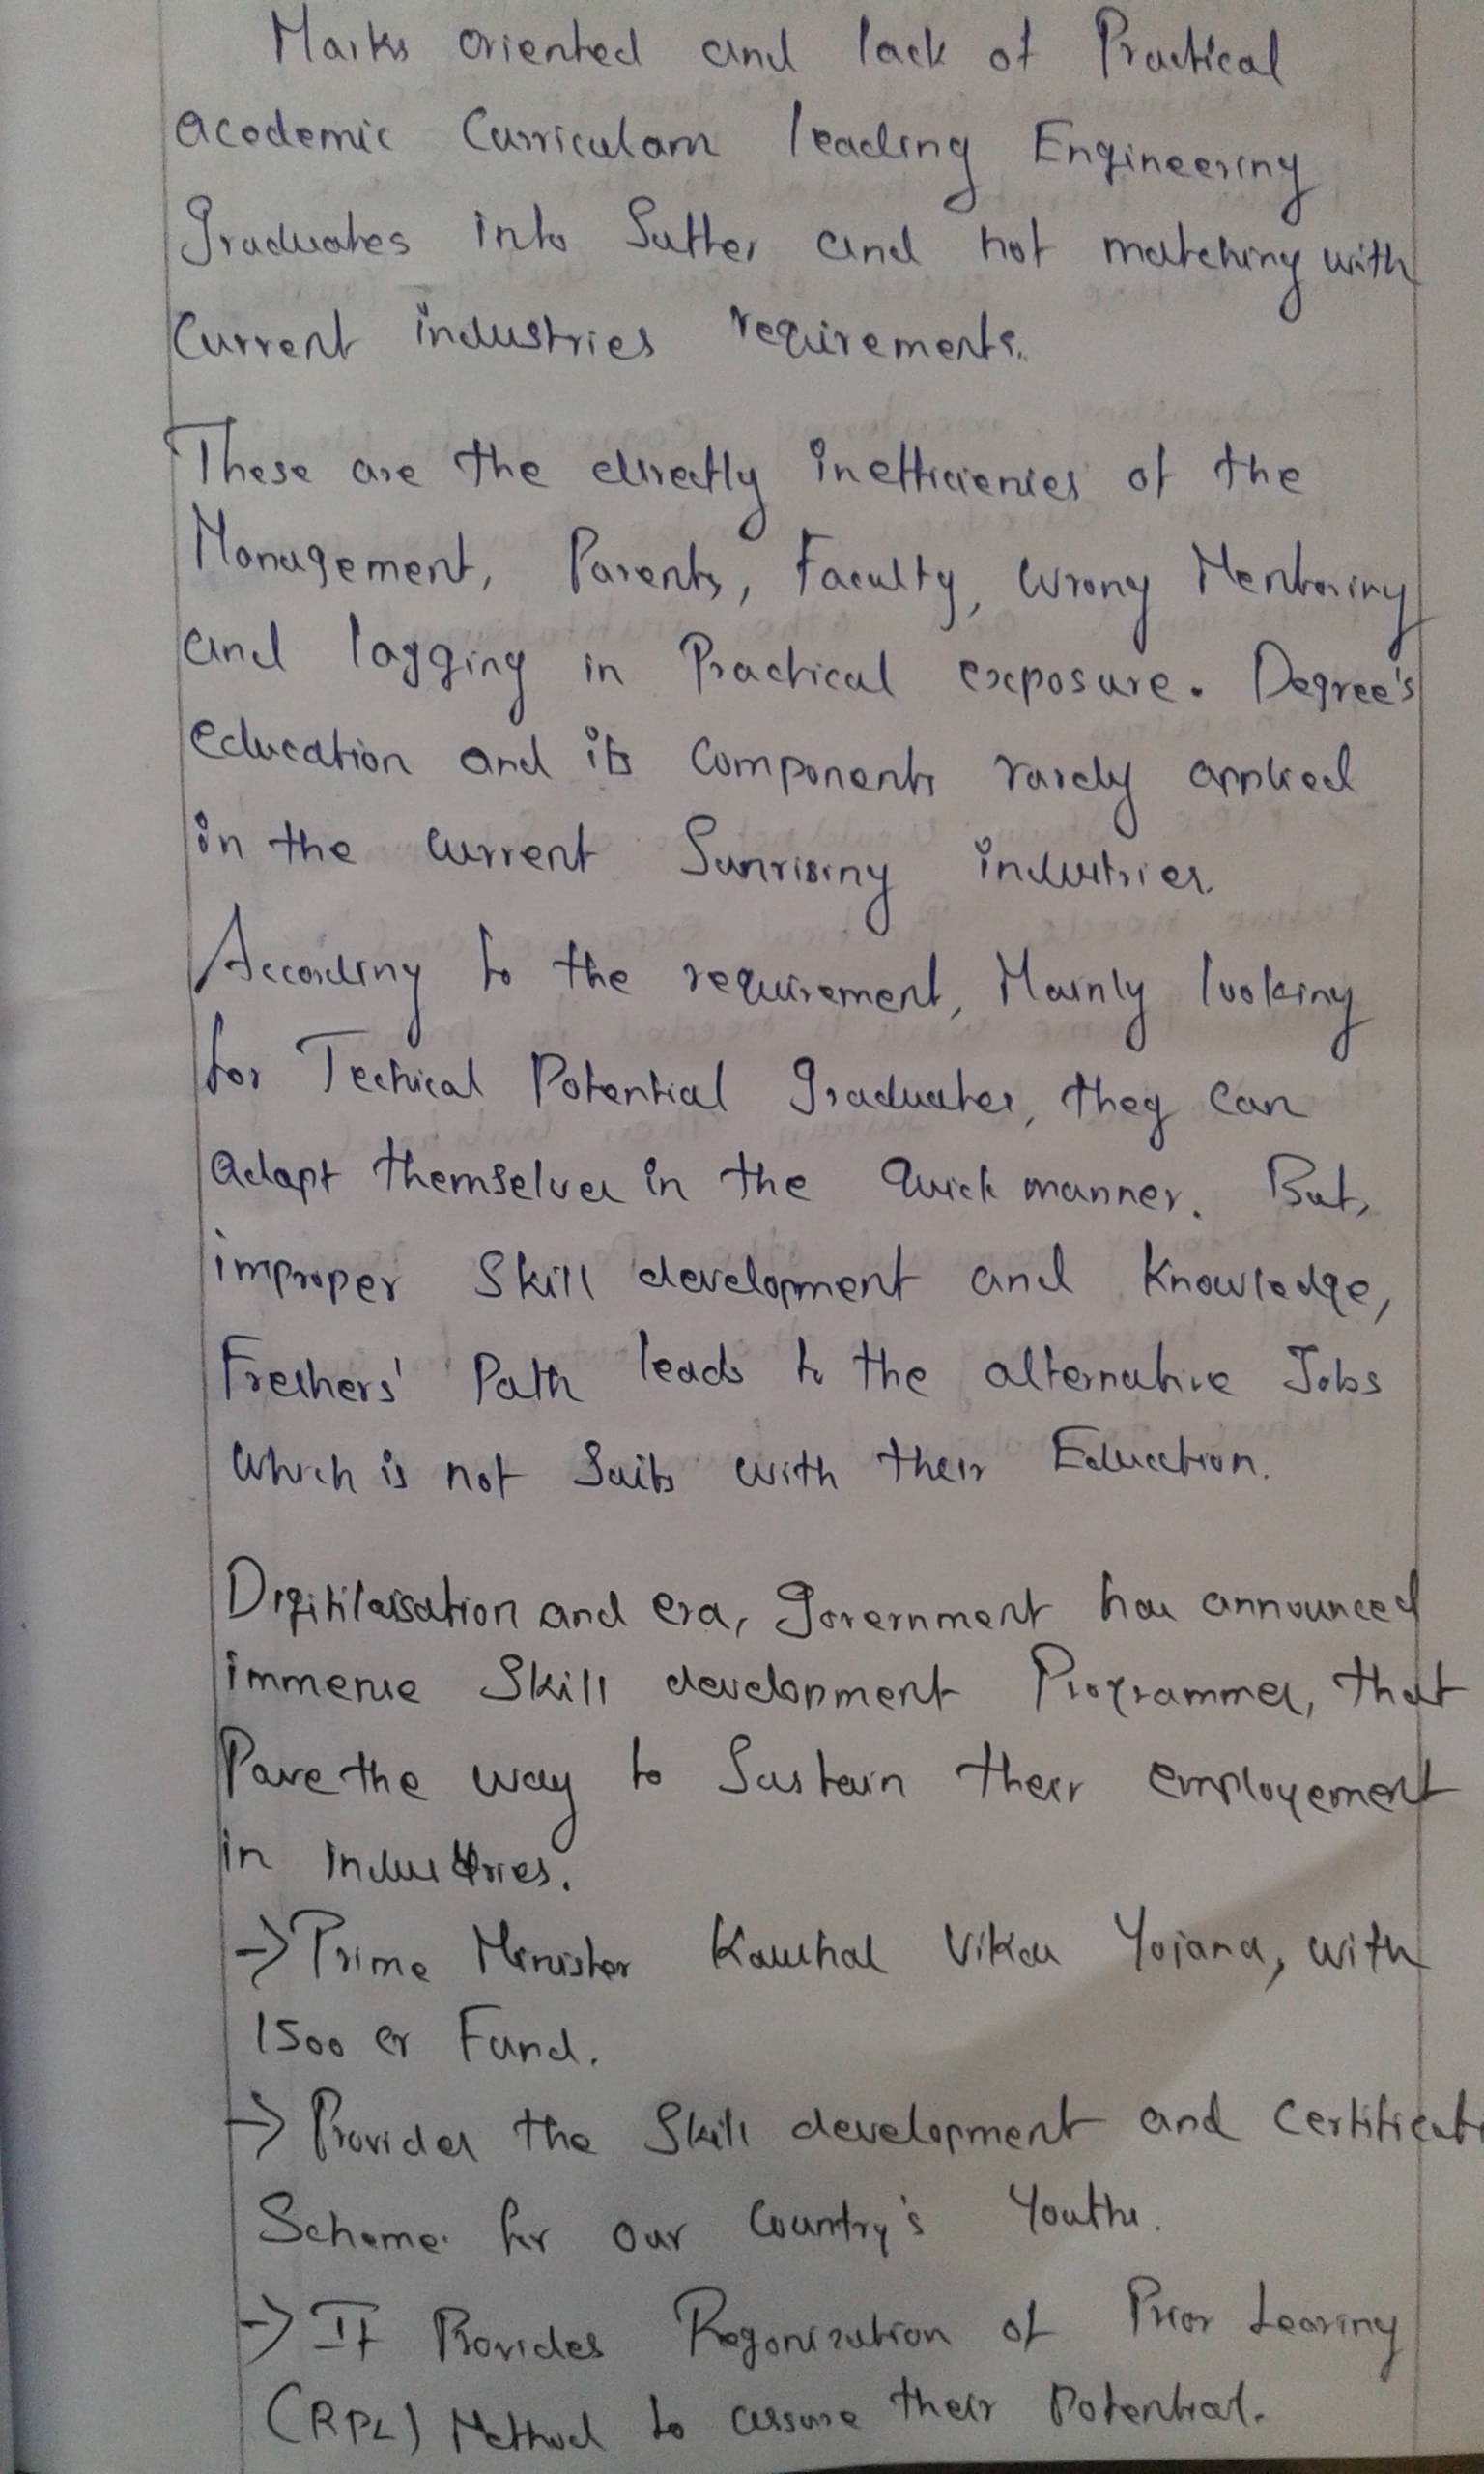 Marks oriented and lack of Practical
academic Curriculam leading Engineering
Graduates into Suffer and not matching with
Current industries requirements.
These are the directly inefficienies of the
Management, Parents, Faculty, Wrong Mentoring
and lagging in Practical exposure. Degree's
education and its Components rarely applied
in the Current Sunrising industries.
According to the requirement, Mainly looking
for Techical Potential Graduates, they can
adapt themselves in the Quick manner. But,
improper Skill development and Knowledge,
Freshers' Path leads to the alternative Jobs
which is not Suits with their Education.
and era, Government has announced
immense Skill development Programmes, that
Pave the way to Sustain their employement
in industries.
-> Prime Minister Kaushal Vikas Yojana, with
1500 cr Fund.
-> Provides the Skill development and Certificati
Scheme for our Country's Youths.
-> It Provides Regonization of Prior Learing
(RPL) Method to assure their Potential.